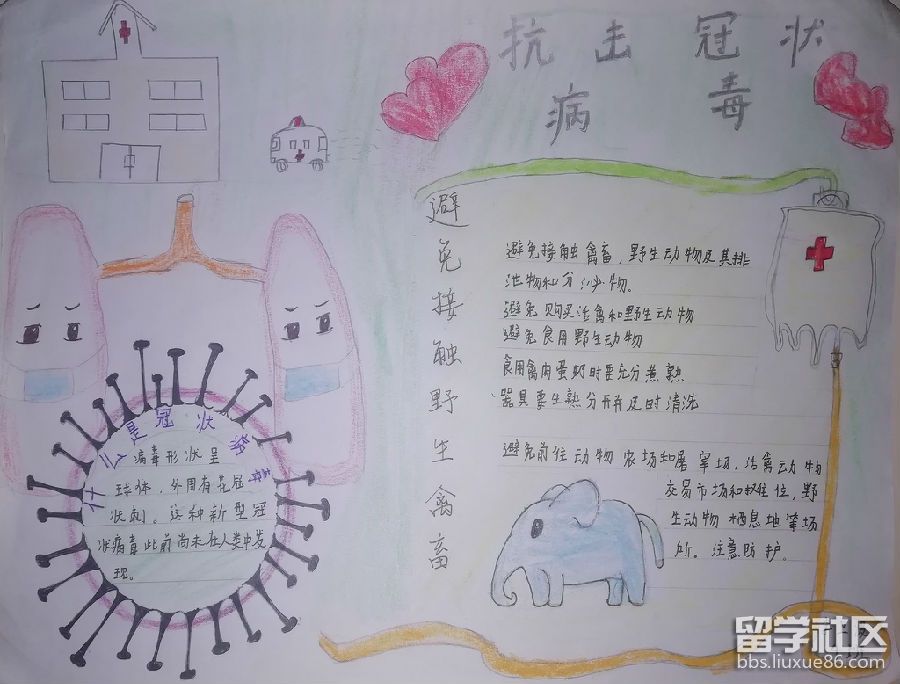 抗击冠状
病毒
什么是冠状病毒
病毒形状呈
球体，外周有花冠
状刺。这种新型冠
状病毒此前尚未在人类中发
现。
避免接触野生禽畜
避免接触禽畜，野生动物及其排
泄物和分泌物。
避免购买活禽和野生动物
避免食用野生动物
食用禽肉蛋奶时要充分煮熟
器具要生熟分开及时清洗
避免前往动物农场和屠宰场，活禽动物
交易市场和摊位，野
生动物栖息地等场
所。注意防护。
留学社区
bbs.liuxue86.com